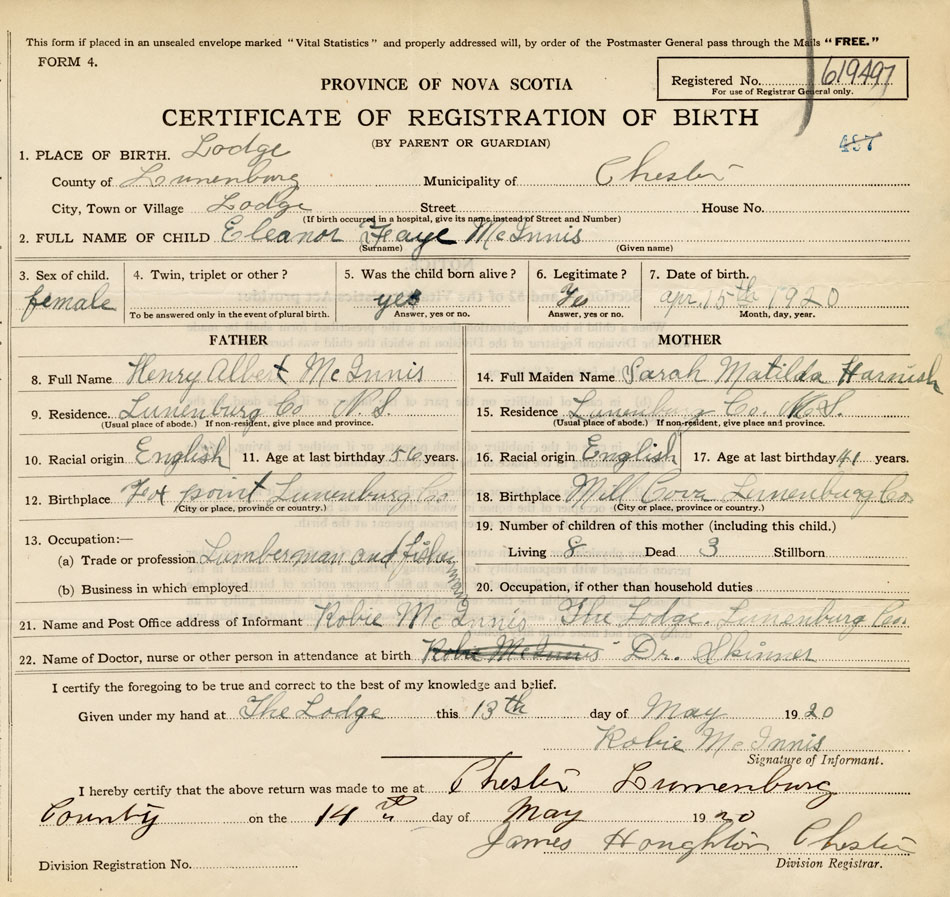 This form if placed in an unsealed envelope marked "Vital Statistics" and properly addressed will, by order of the Postmaster General pass through the Mails "FREE."
FORM 4.
Registered No. 619497
For use of Registrar General only.
PROVINCE OF NOVA SCOTIA
CERTIFICATE OF REGISTRATION OF BIRTH
(BY PARENT OR GUARDIAN)
487
1. PLACE OF BIRTH. Lodge
County of Lunenburg Municipality of Chester
City, Town or Village Lodge Street House No.
(If birth occurred in a hospital, give its name instead of Street and Number)
2. FULL NAME OF CHILD Eleanor Faye McInnis
(Surname) (Given name)
3. Sex of child. 4. Twin, triplet or other? 5. Was the child born alive? 6. Legitimate? 7. Date of birth.
female yes Yes apr. 15th 1920
To be answered only in the event of plural birth. Answer, yes or no. Answer, yes or no. Month, day, year.
FATHER MOTHER
8. Full Name Henry Albert McInnis 14. Full Maiden Name Sarah Matilda Harnish
9. Residence. Lunenburg Co N.S. 15. Residence Lunenburg Co. N.S.
(Usual place of abode.) If non-resident, give place and province. (Usual place of abode.) If non-resident, give place and province.
10. Racial origin English 11. Age at last birthday 56 years. 16. Racial origin English 17. Age at last birthday 41 years.
12. Birthplace Fox point Lunenburg Co 18. Birthplace Mill Cove Lunenburg Co.
(City or place, province or country.) (City or place, province or country.)
19. Number of children of this mother (including this child.)
13. Occupation:—
Living 8 Dead 3 Stillborn
(a) Trade or profession Lumberman and fisherman
(b) Business in which employed 20. Occupation, if other than household duties
21. Name and Post Office address of Informant Robie McInnis The Lodge. Lunenburg Co.
22. Name of Doctor, nurse or other person in attendance at birth Robie McInnis Dr. Skinner
I certify the foregoing to be true and correct to the best of my knowledge and belief.
Given under my hand at The Lodge this 13th day of May 1920
Robie McInnis
Signature of Informant.
I hereby certify that the above return was made to me at Chester Lunenburg
County on the 14th day of May 1920
James Houghton Chester
Division Registration No. Division Registrar.